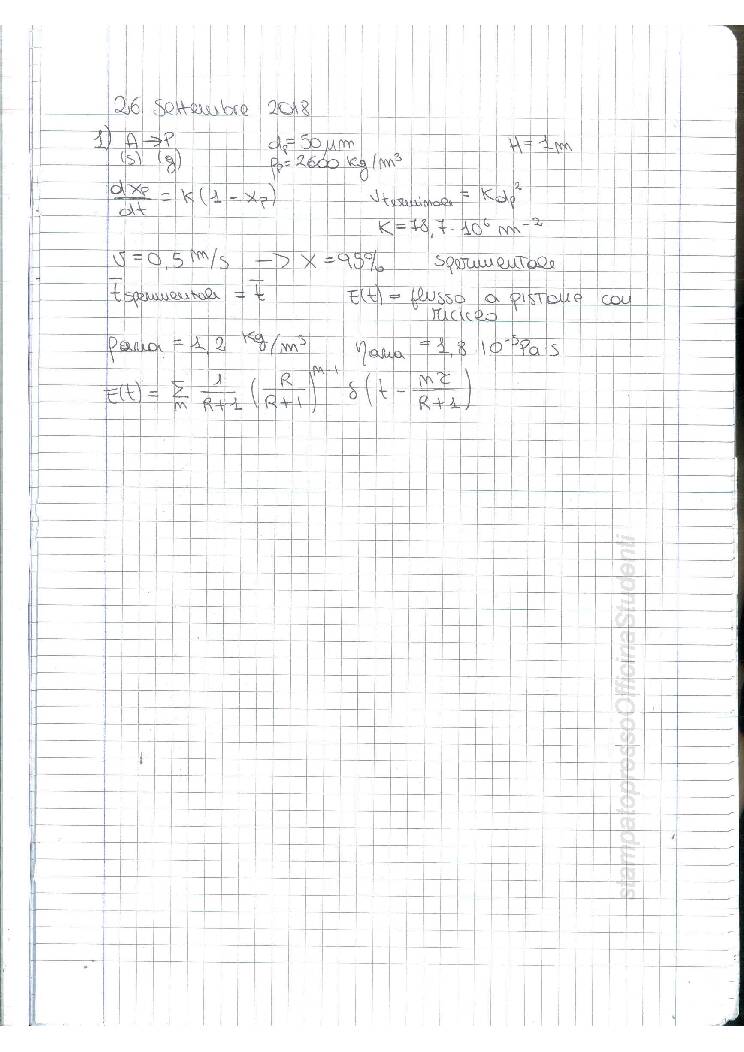 26 Settembre 2018
1) A → P dp = 50 μm H = 1 m
(s) (g) ρp = 2600 kg/m³
dxp/dt = K(1 - xp) vterminale = K dp²
K = 78,7 · 10⁶ m⁻²
v = 0,5 m/s → X = 95% sperimentale
t̄ sperimentale = t̄ E(t) = flusso a pistone con
riciclo
ρaria = 1,2 kg/m³ ηaria = 1,8 10⁻⁵ Pa s
E(t) = Σm 1/(R+1) (R/(R+1))^(m-1) δ(t - mτ/(R+1))
stampatopressoOfficinaStudenti